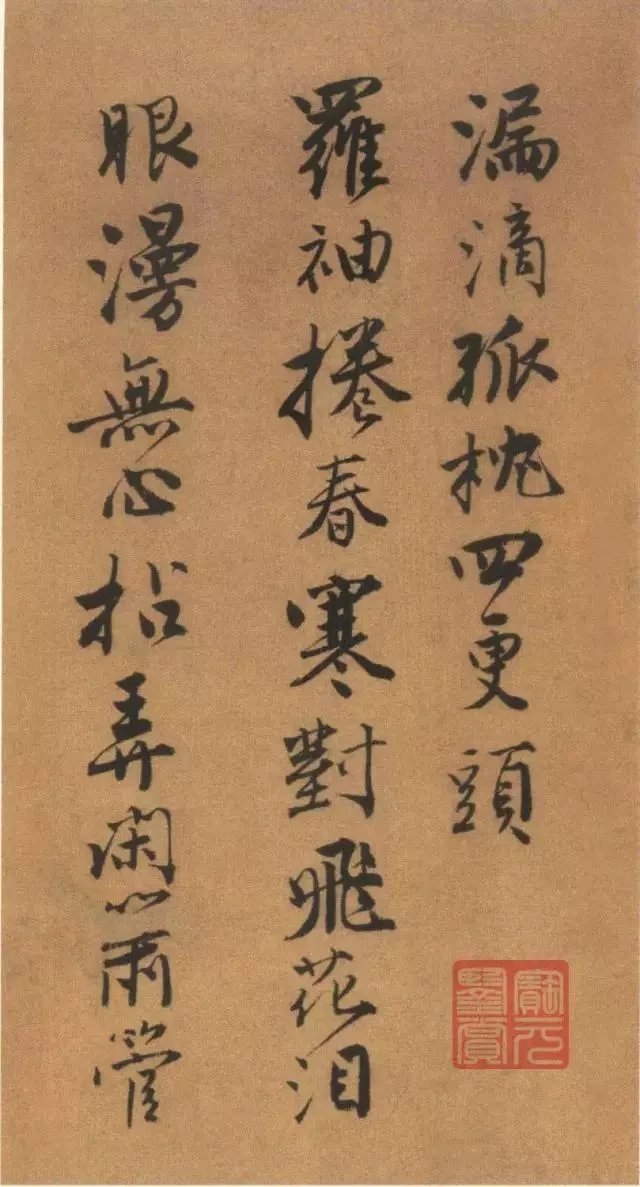 漏滴孤枕四更頭
羅袖捲春寒對飛花泪
眼漫無心拈弄閑簫管